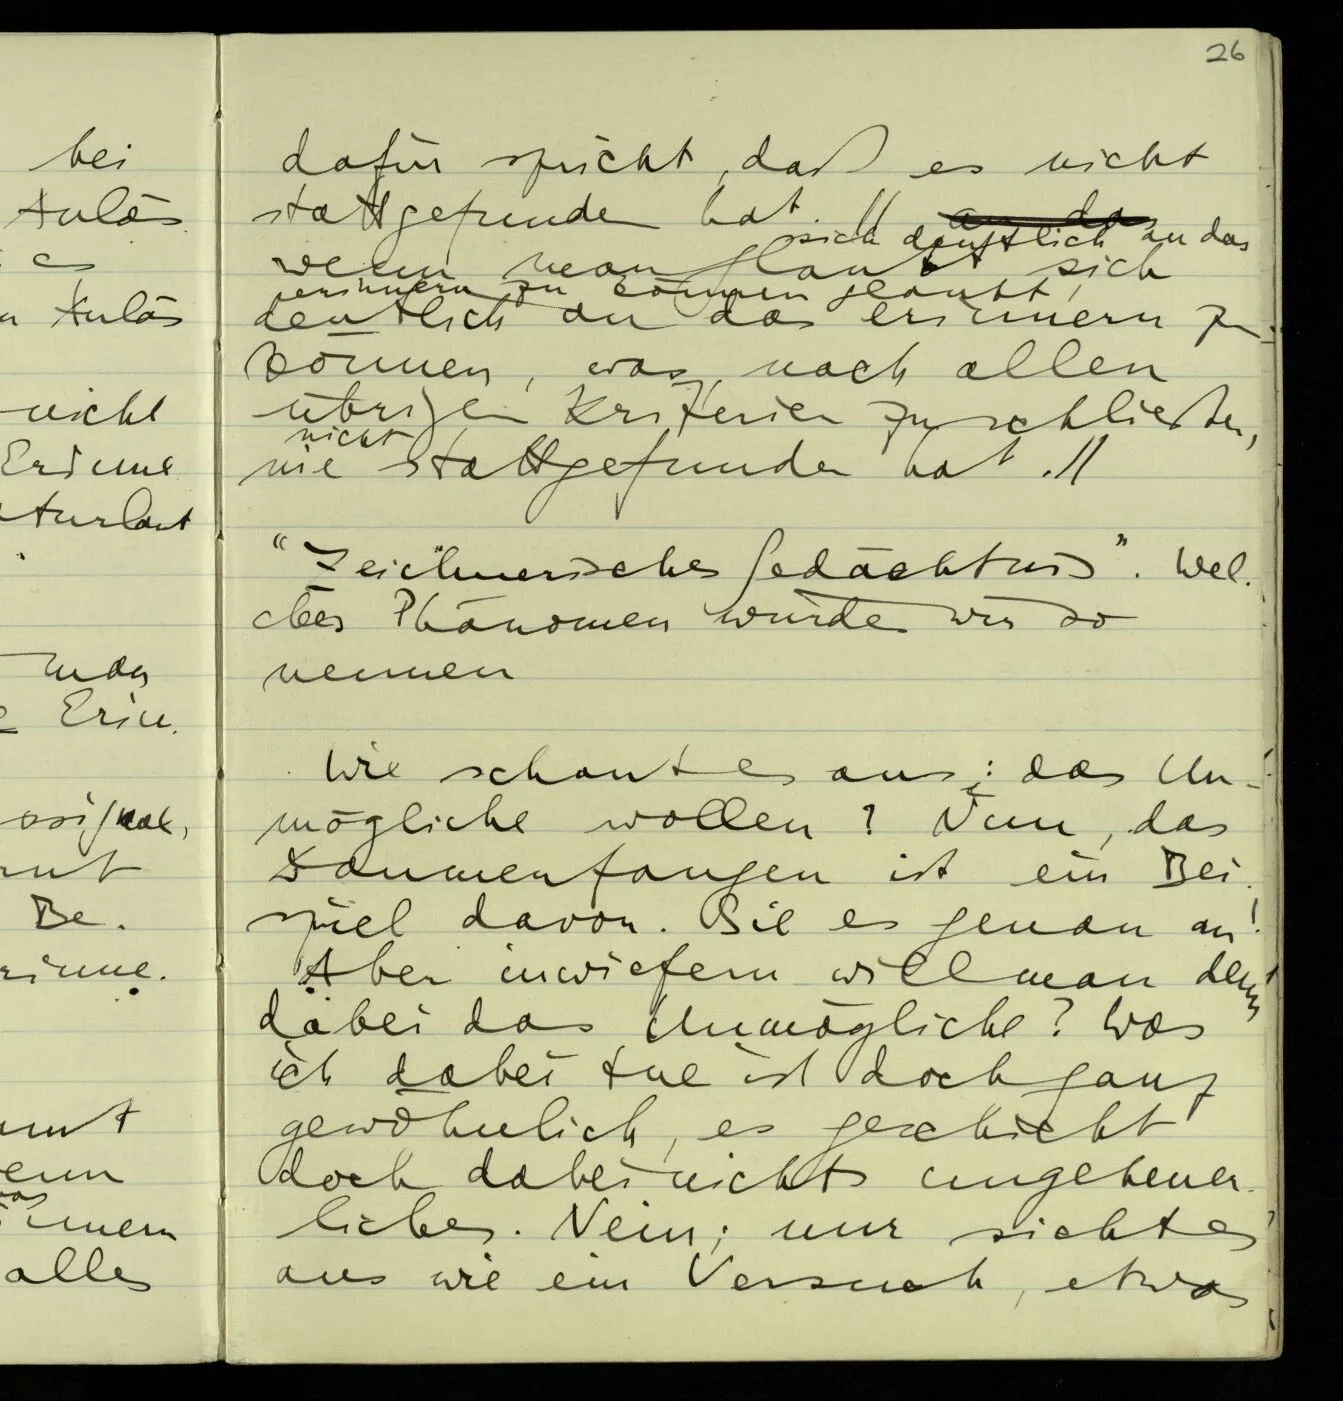 26
bei
Anlas
es
Anlas
nicht
Erinne
aturlaut
Erin.
original,
Be.
rinne.
alles
dafür spricht, daß es nicht
stattgefunden hat. // an das
sich deutlich an das
wenn man glaubt sich
erinnern zu können glaubt,
deutlich an das erinnern zu
können, was, nach allen
übrigen Kriterien zu schließen,
nicht
nie stattgefunden hat. //
“Zeichnerisches Gedächtnis”. Wel-
ches Phänomen würde wir so
nennen
Wie schaut es aus: das Un-
mögliche wollen? Nun, das
Daumenfangen ist ein Bei-
spiel davon. Sieh es genau an!
Aber inwiefern will man denn
dabei das Unmögliche? Was
ich dabei tue ist doch ganz
gewöhnlich, es geschieht
doch dabei nichts ungeheuer-
liches. Nein; nur sieht es
aus wie ein Versuch, etwas